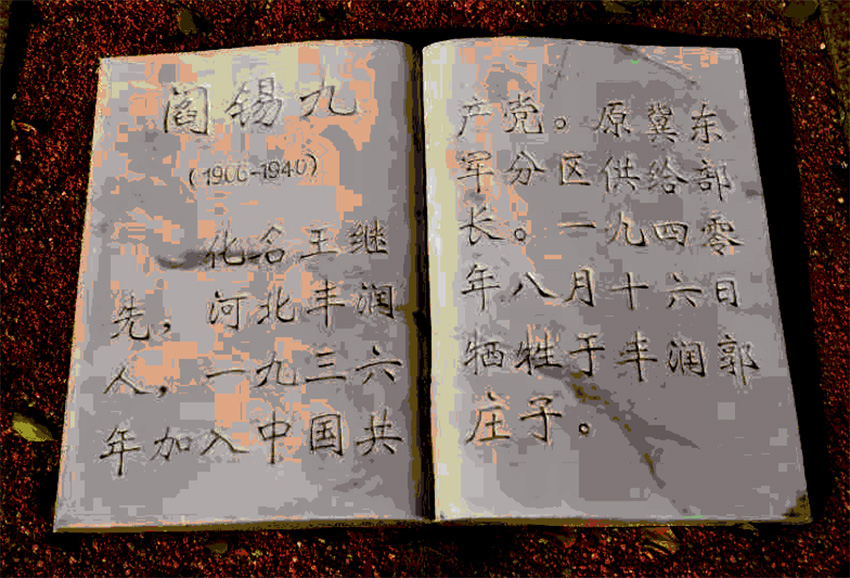 阎锡九
(1906-1940)
化名王继
先，河北丰润
人，一九三六
年加入中国共
产党。原冀东
军分区供给部
长。一九四零
年八月十六日
牺牲于丰润郭
庄子。